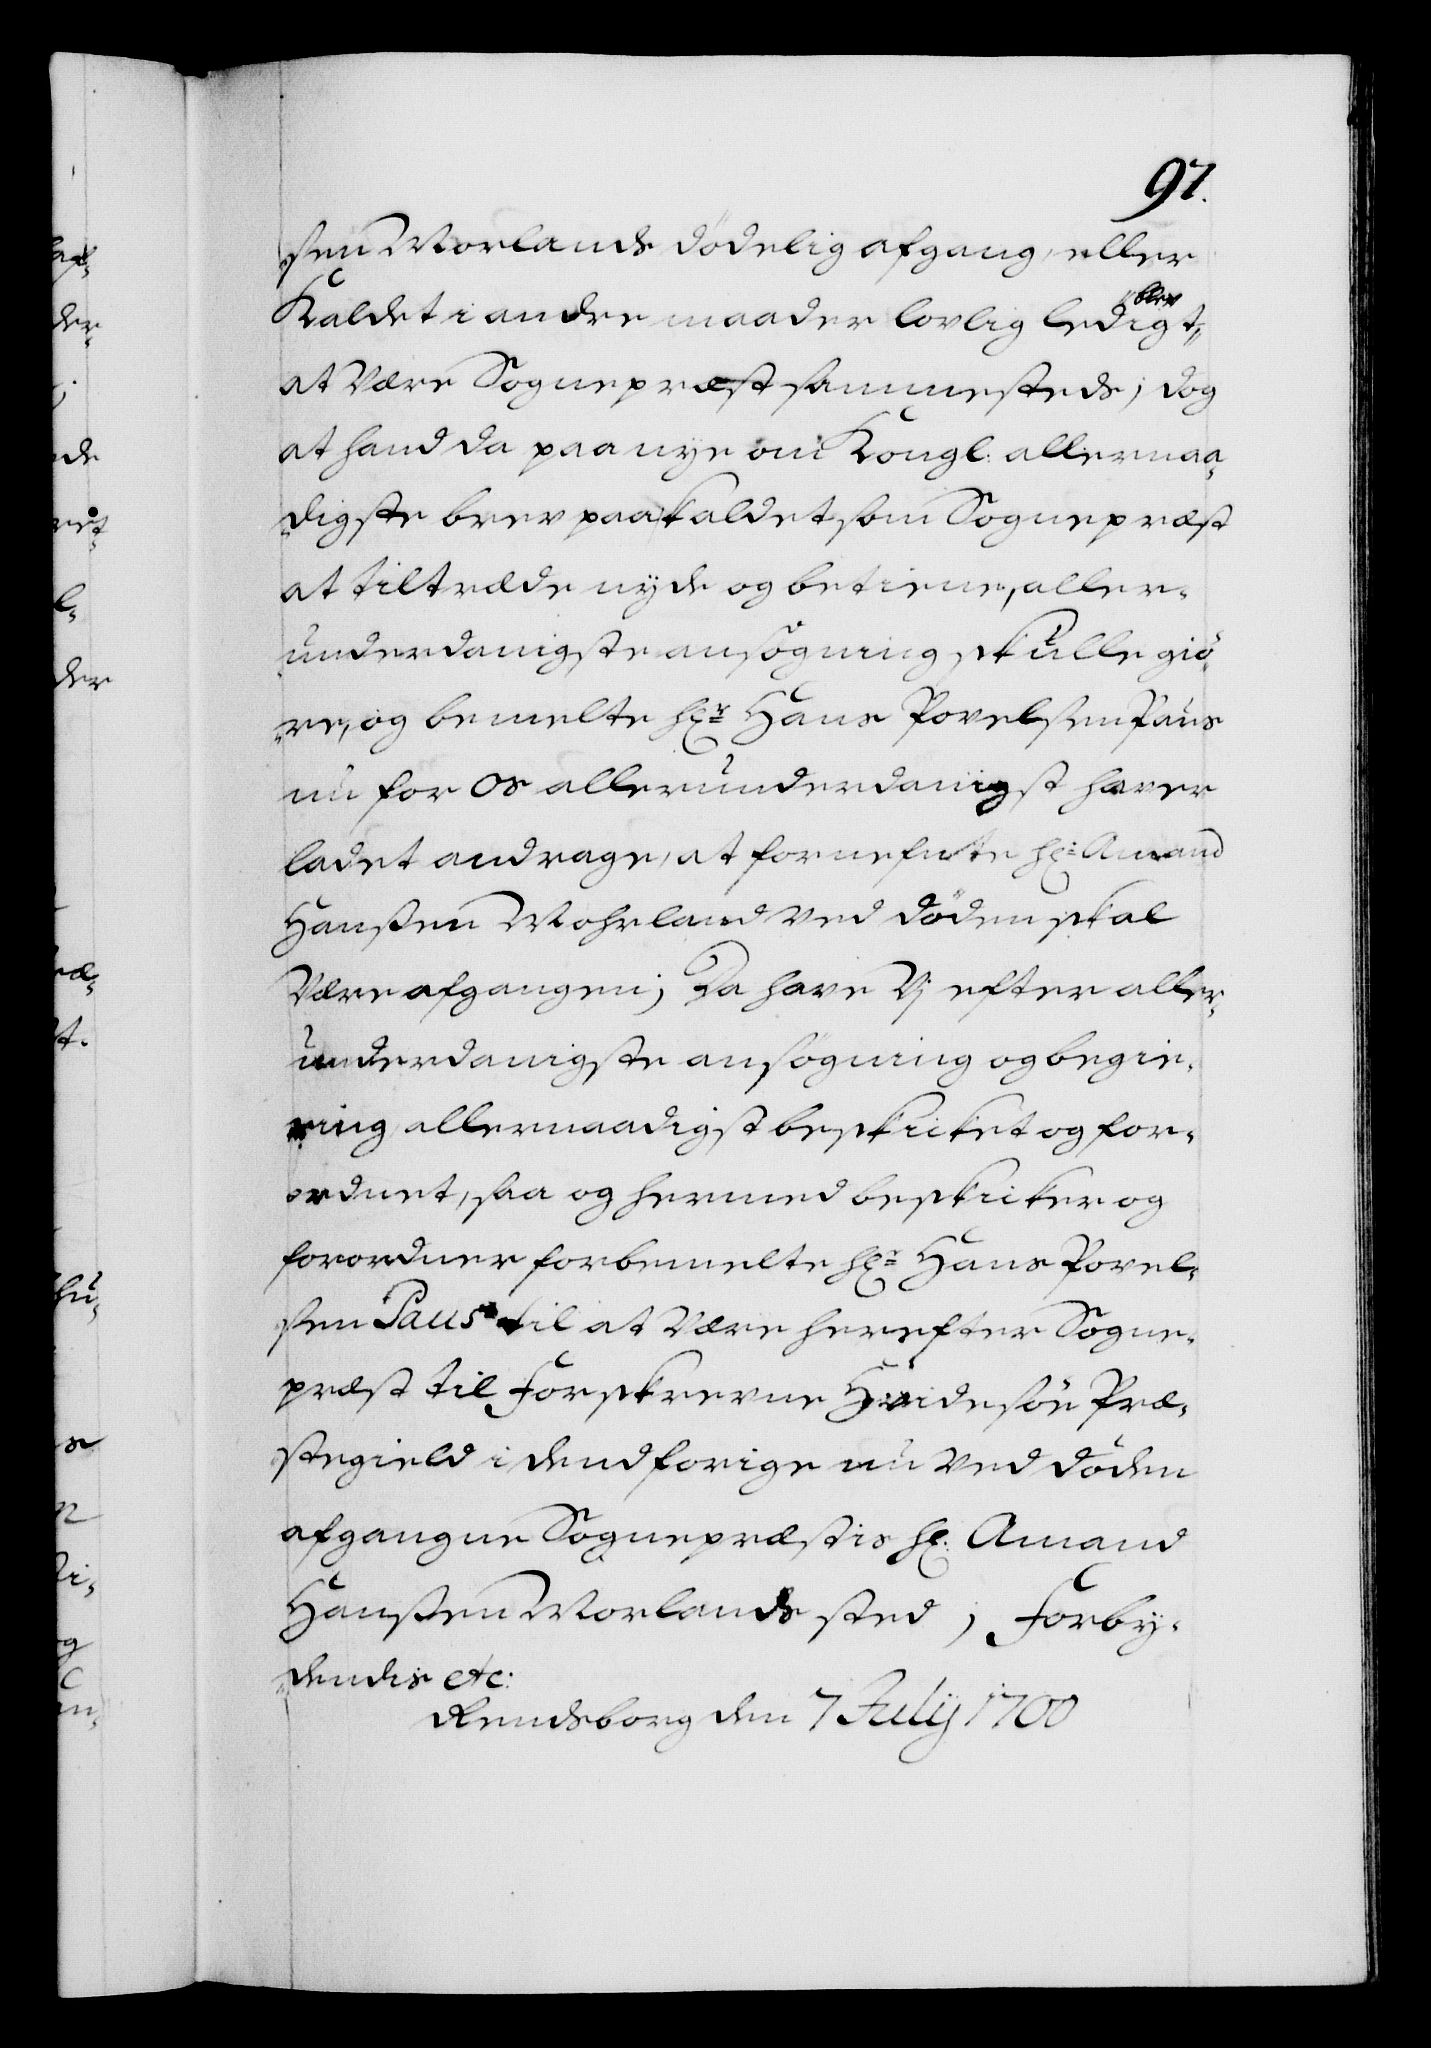 97.
sen Morlands dödelig afgang, eller
Kaldet i andre maader lovlig ledigt blev
at være Sognepræst sammesteds; dog
at hand da paa nye om Kongl: allernaa-
digste brev paa Kaldet som Sognepræst
at tiltræde nyde og betiene, aller-
underdanigste ansögning skulle giö-
re, og bemelte hr: Hans Povelsen Paus
nu for os allerunderdanigst haver
ladet andrage, at fornefnte hr: Amand
Hanssen Mohrland ved döden skal
være afgangen; Da have Vi efter aller-
underdanigste ansögning og begie-
ring allernaadigst beskicket og for-
ordnet, saa og hermed beskicker og
forordner forbemelte hr: Hans Povel-
sen Paus til at være herefter Sogne-
præst til Forskrevne Hvidesöe Præ-
stegield i dend forige nu ved döden
afgangne Sognepræstis hr: Amand
Hanssen Morlands sted; Forby-
dendis etc:
Rendsborg den 7 July 1700